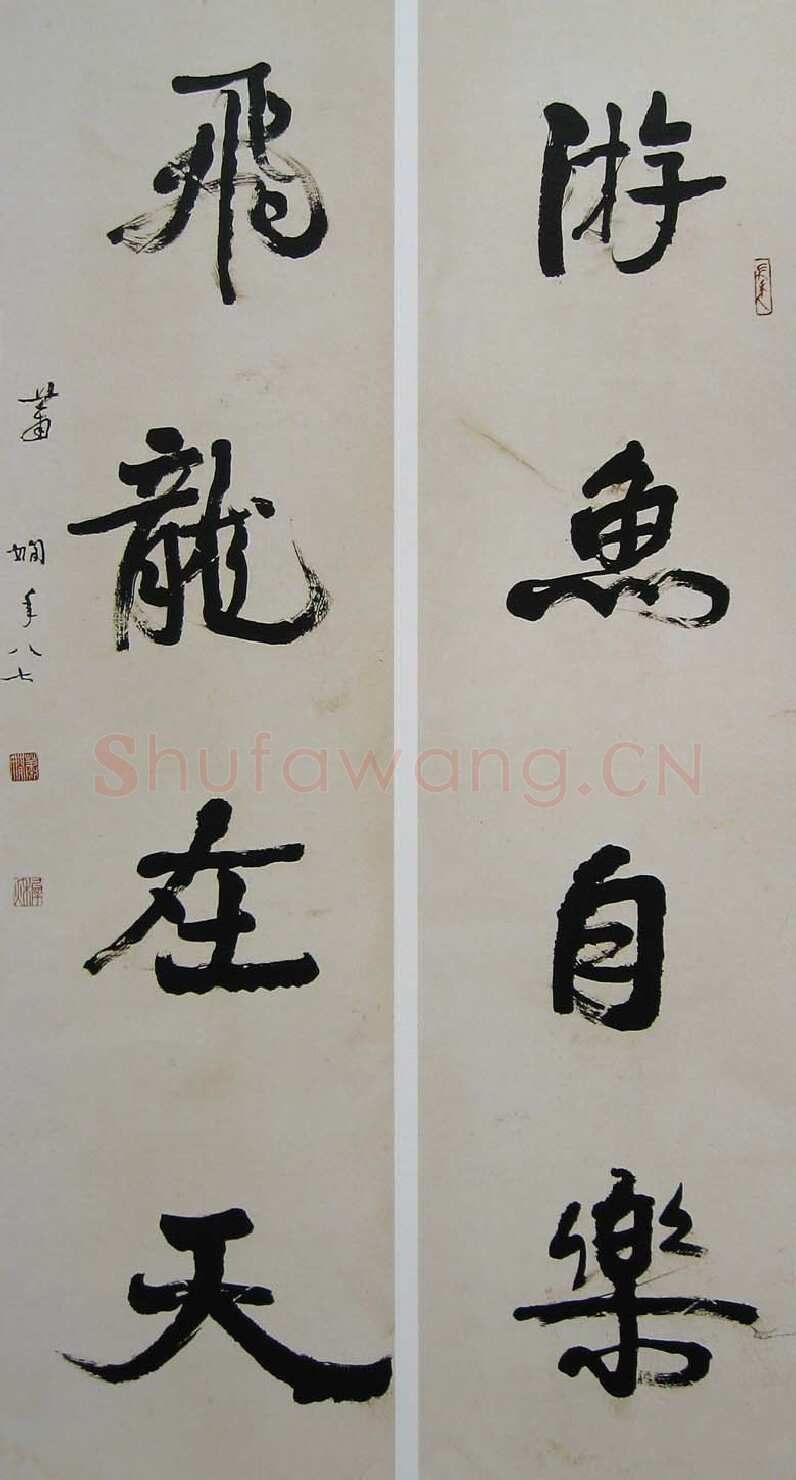 游魚自樂
飛龍在天
蕭嫺年八七
Shufawang.CN